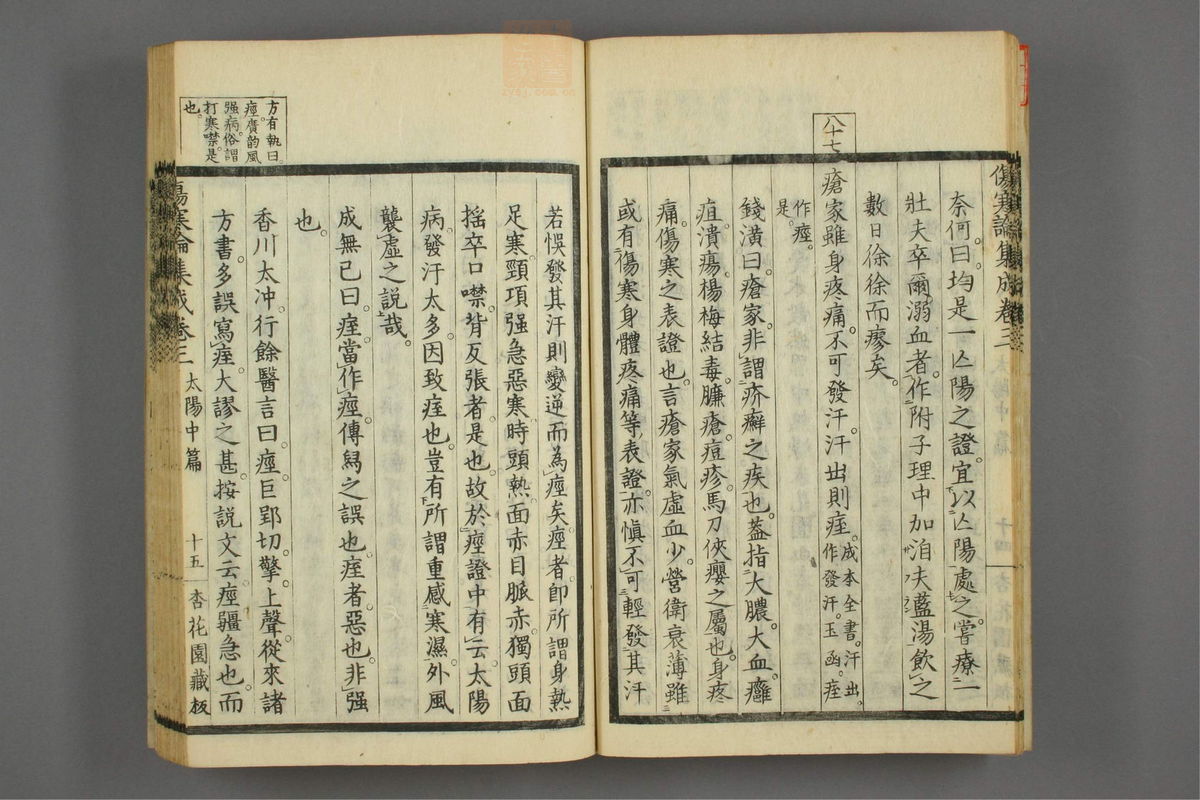 傷寒論集成卷三
奈何曰均是一亾陽之證宜以亾陽處之嘗療一
壯夫卒爾溺血者作附子理中加泊夫藍湯飲之
數日徐徐而瘳矣
八十七
瘡家雖身疼痛不可發汗汗出則痓成本全書汗出作發汗玉函痓
作痙是
錢潢曰瘡家非謂疥癬之疾也蓋指大膿大血癰
疽潰瘍楊梅結毒臁瘡痘疹馬刀俠癭之屬也身疼
痛傷寒之表證也言瘡家氣虛血少營衛衰薄雖
或有傷寒身體疼痛等表證亦愼不可輕發其汗
若悞發其汗則變逆而為痙矣痙者卽所謂身熱
足寒頸項强急惡寒時頭熱面赤目脈赤獨頭面
搖卒口噤背反張者是也故於痙證中有云太陽
病發汗太多因致痓也豈有所謂重感寒濕外風
襲虛之說哉
成無己曰痓當作痙傳冩之誤也痓者惡也非强
也
香川太冲行餘醫言曰痙巨郢切擎上聲從來諸
方書多誤寫痓大謬之甚按說文云痙彊急也而
方有執曰
痙賡韵風
强病俗謂
打寒噤是
也
傷寒論集成卷三 太陽中篇 十五 杏花園藏板